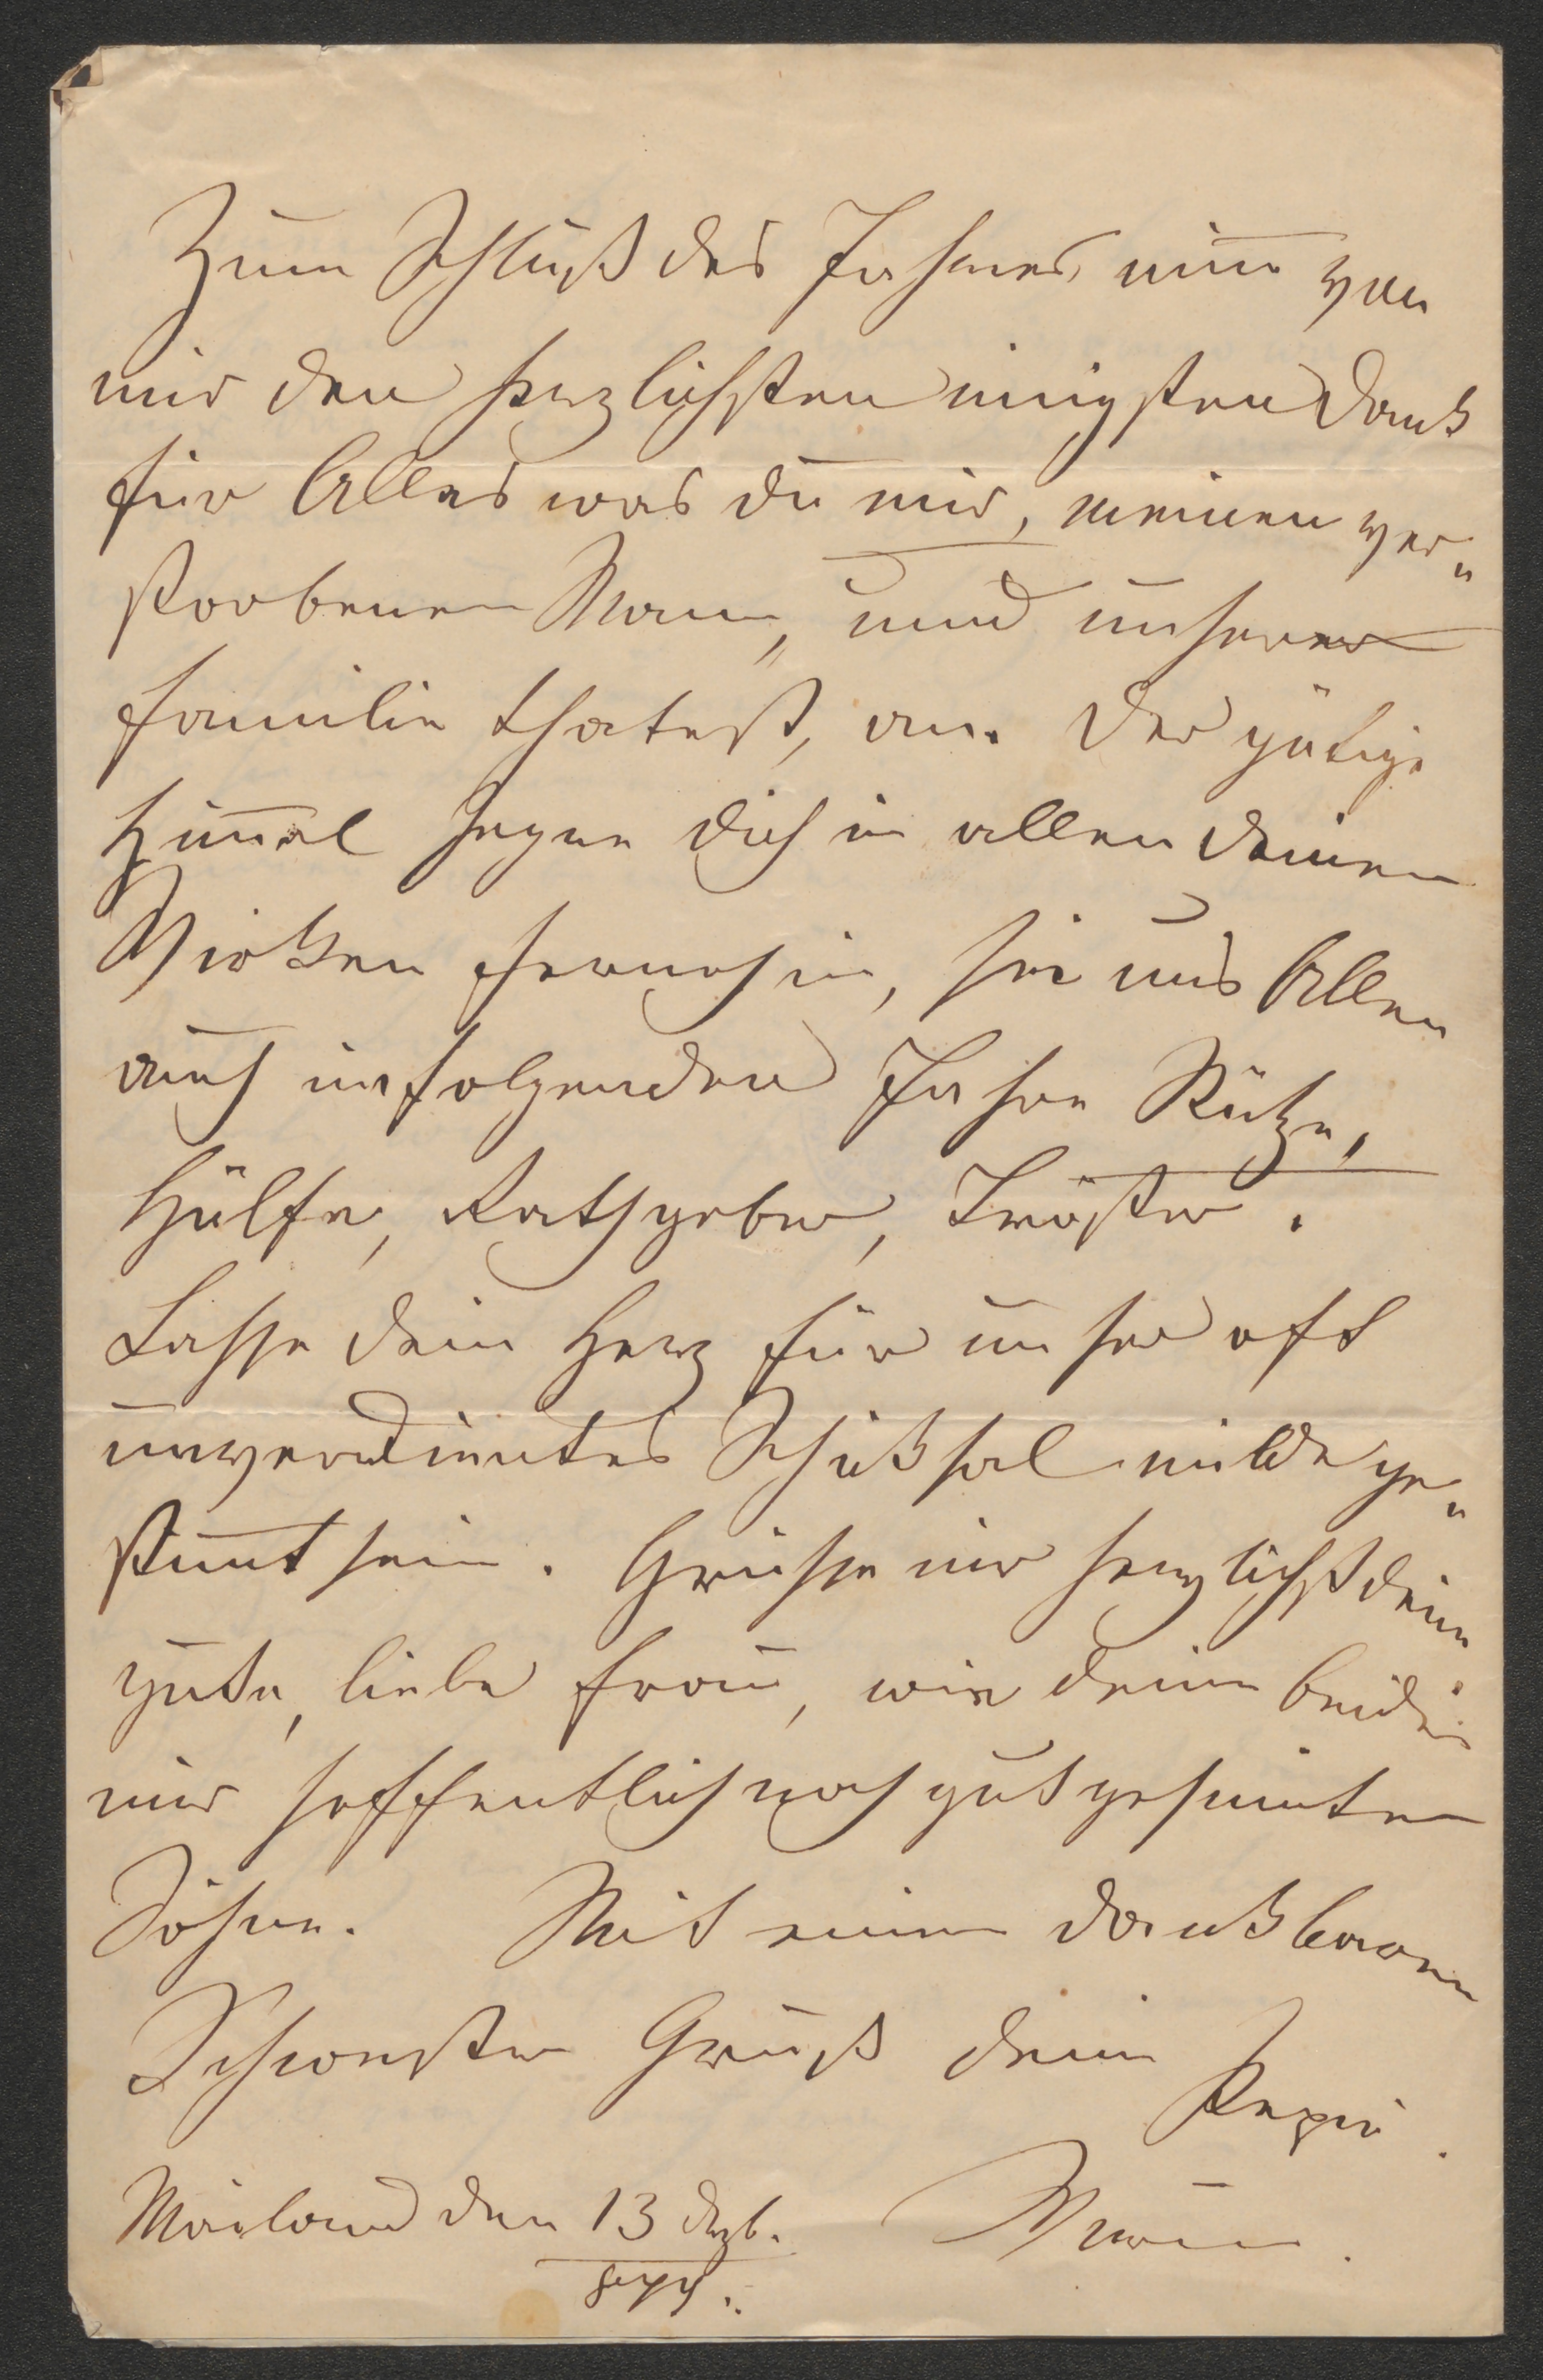 Zum Schluß des Jahres, nim̅ von
mir den herzlichsten inigsten Dank
für Alles was du mir, meinen ver„
storbenen Mann, und unserer
Familie thatest, an. Der gütige
Him̅el segne dich in allen deinen
Wirken fernerhin, sei uns Allen
auch im folgenden Jahre Stütze,
Hülfe, Rathgeber, Tröster.
Lasse dein Herz für unser oft
unverdientes Schiksal milde ge„
stim̅t sein. Grüsse mir herzlichst deine
gute, liebe Frau, wie deine beiden
mir hoffentlich noch gut gesinnten
Söhne. Mit einen dankbaren
Schwester Gruß deine
Pepi
Mailand den 13 Dezb.